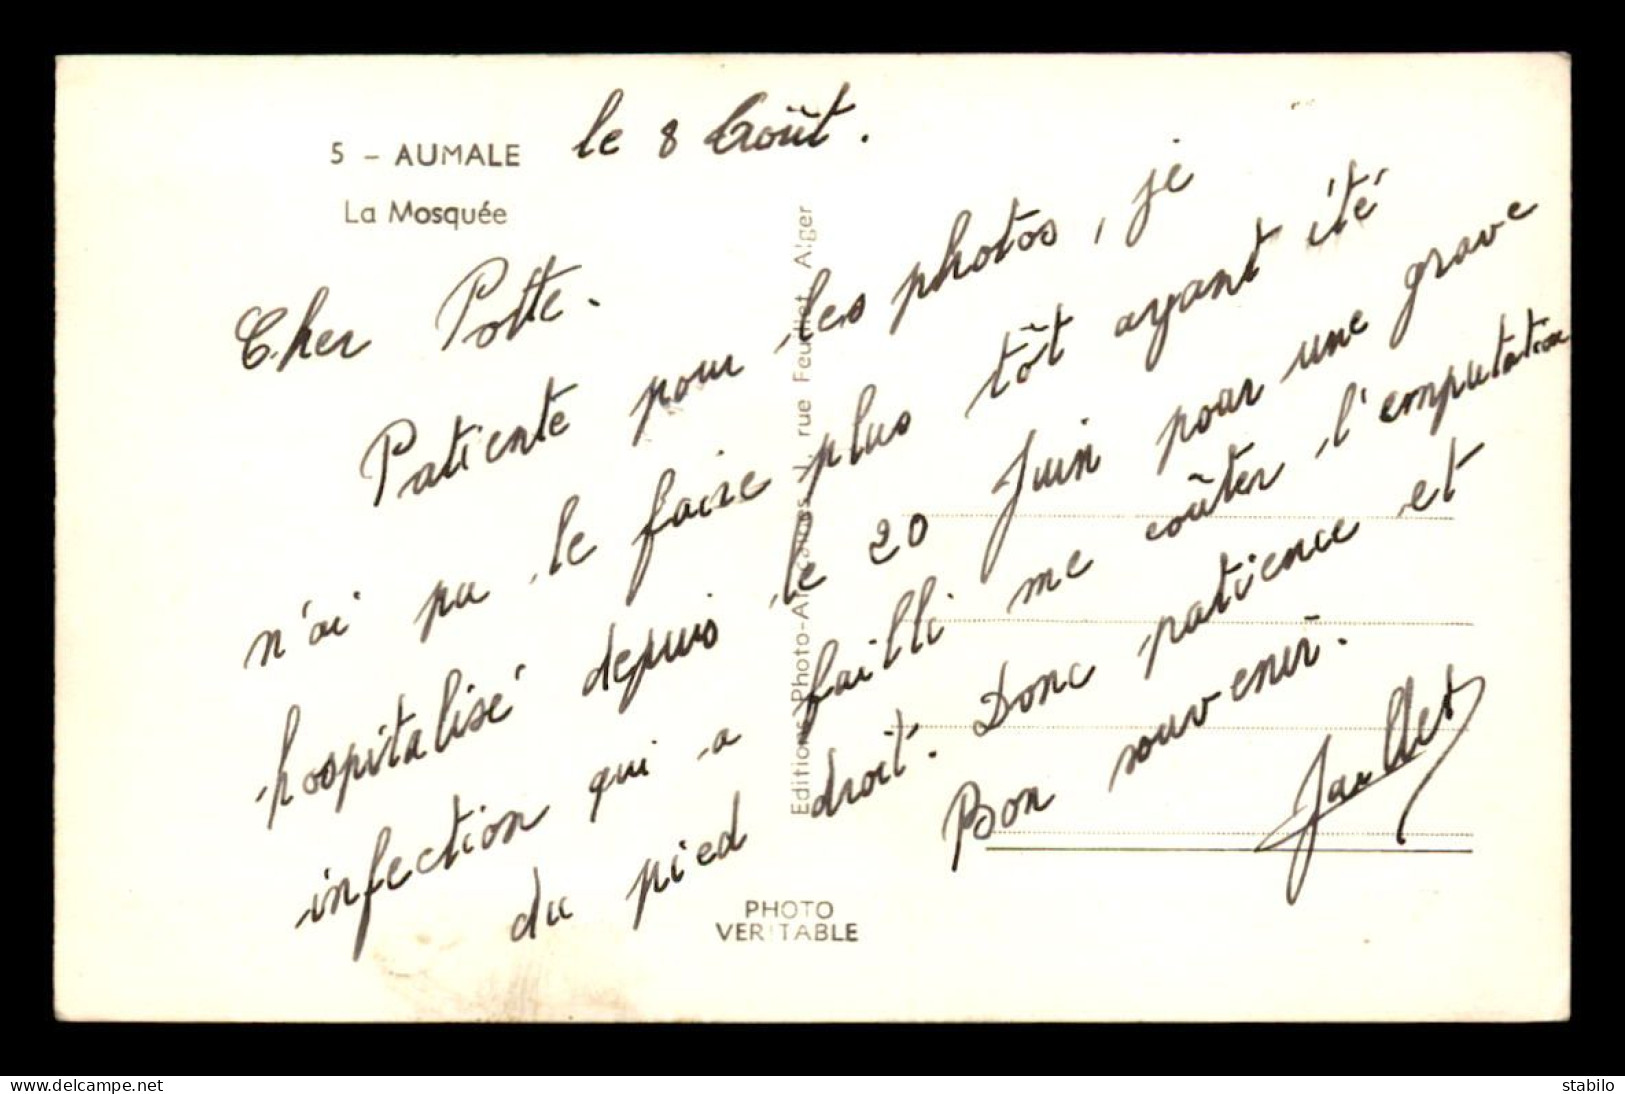 5 - AUMALE
La Mosquée
le 8 Août.
Cher Potte.
Patiente pour les photos, je
n'ai pu le faire plus tôt ayant été
hospitalisé depuis le 20 Juin pour une grave
infection qui a failli me coûter l'emputation
du pied droit. Donc patience et
Bon souvenir.
Editions Photo-Africaines, rue Feuillet, Alger
PHOTO
VERITABLE
delcampe.net
stabilo